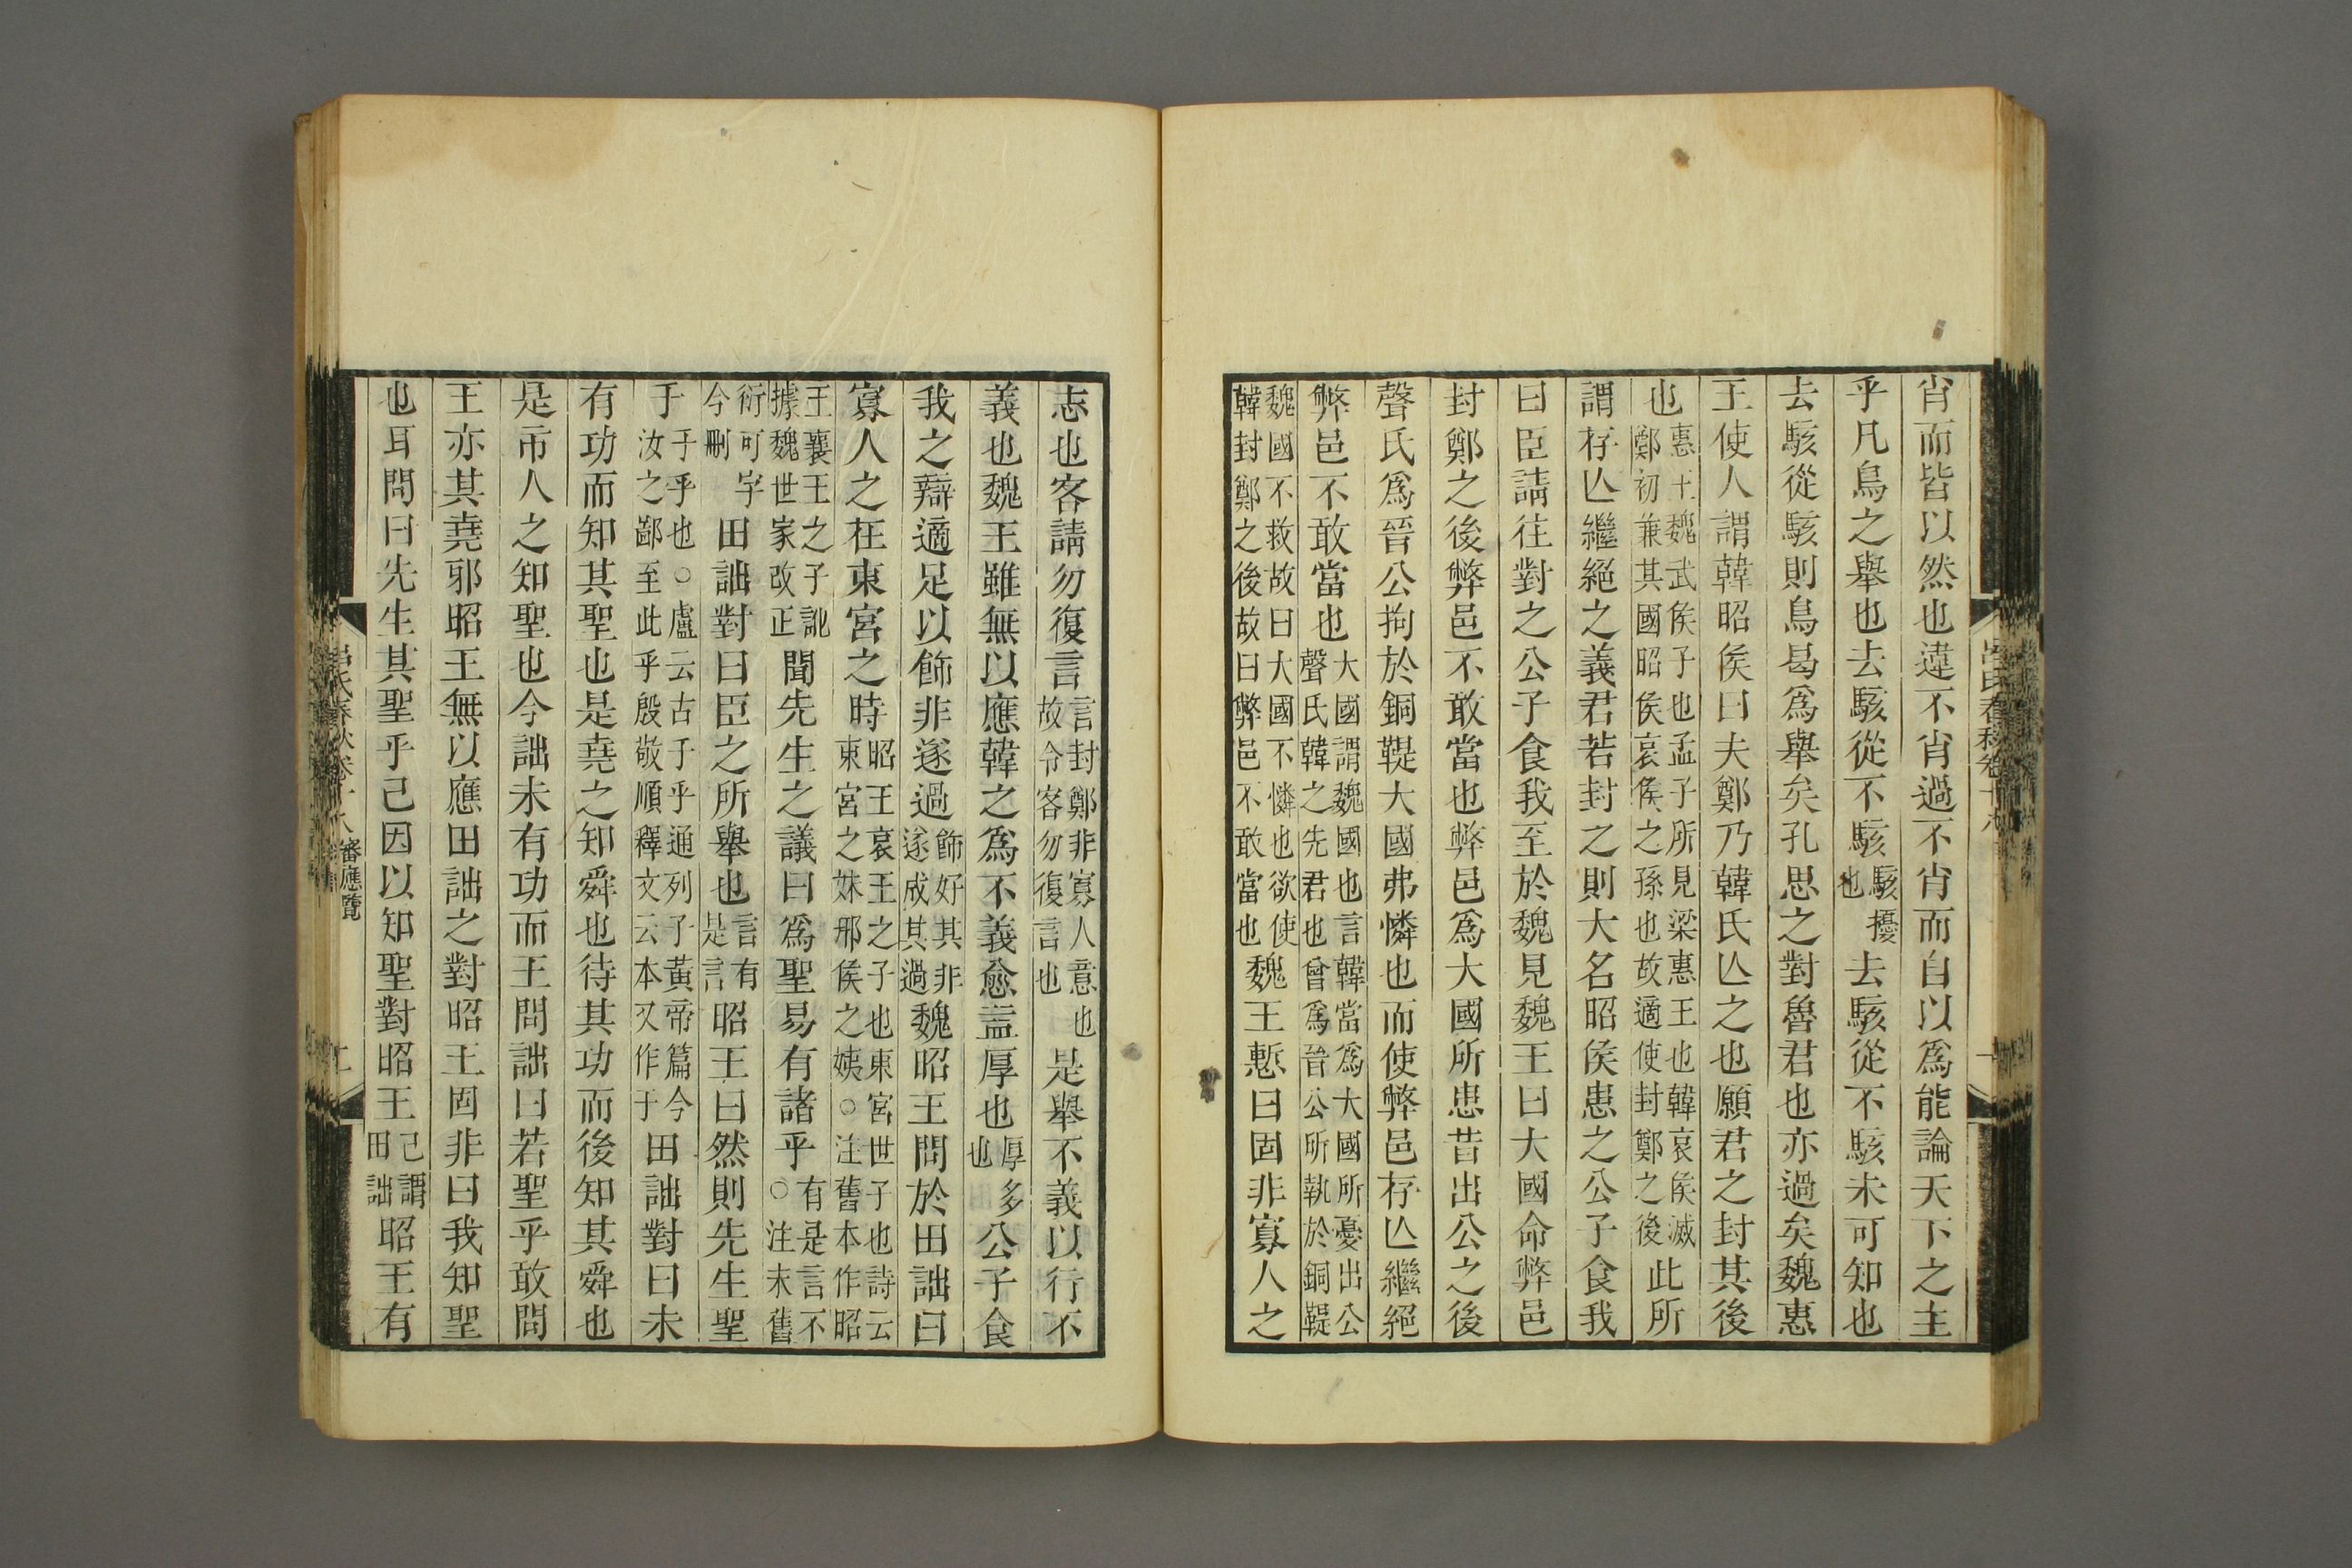 呂氏春秋卷十八
肖而皆以然也違不肖過不肖而自以爲能論天下之主
乎凡鳥之舉也去駭從不駭駭擾也去駭從不駭未可知也
去駭從駭則鳥曷爲舉矣孔思之對魯君也亦過矣魏惠
王使人謂韓昭侯曰夫鄭乃韓氏亾之也願君之封其後
也惠王魏武侯子也孟子所見梁惠王也韓哀侯滅鄭初兼其國昭侯哀侯之孫也故適使封鄭之後此所
謂存亾繼絕之義君若封之則大名昭侯患之公子食我
曰臣請往對之公子食我至於魏見魏王曰大國命弊邑
封鄭之後弊邑不敢當也弊邑爲大國所患昔出公之後
聲氏爲晉公拘於銅鞮大國弗憐也而使弊邑存亾繼絕
弊邑不敢當也大國謂魏國也言韓當爲大國所憂出公聲氏韓之先君也曾爲晉公所執於銅鞮
魏國不救故曰大國不憐也欲使韓封鄭之後故曰弊邑不敢當也魏王慙曰固非寡人之
志也客請勿復言言封鄭非寡人意也故令客勿復言也是舉不義以行不
義也魏王雖無以應韓之爲不義愈益厚也厚多也公子食
我之辯適足以飾非遂過飾好其非遂成其過魏昭王問於田詘曰
寡人之在東宮之時昭王哀王之子也東宮世子也詩云東宮之妹邢侯之姨○注舊本作昭
王襄王之子訛據魏世家改正聞先生之議曰爲聖易有諸乎有是言不○注末舊
衍可字今刪田詘對曰臣之所舉也言有是言昭王曰然則先生聖
于于乎也○盧云古于乎通列子黃帝篇今汝之鄙至此乎殷敬順釋文云本又作于田詘對曰未
有功而知其聖也是堯之知舜也待其功而後知其舜也
是市人之知聖也今詘未有功而王問詘曰若聖乎敢問
王亦其堯邪昭王無以應田詘之對昭王固非曰我知聖
也耳問曰先生其聖乎己因以知聖對昭王己謂田詘昭王有
呂氏春秋卷十八 審應覽